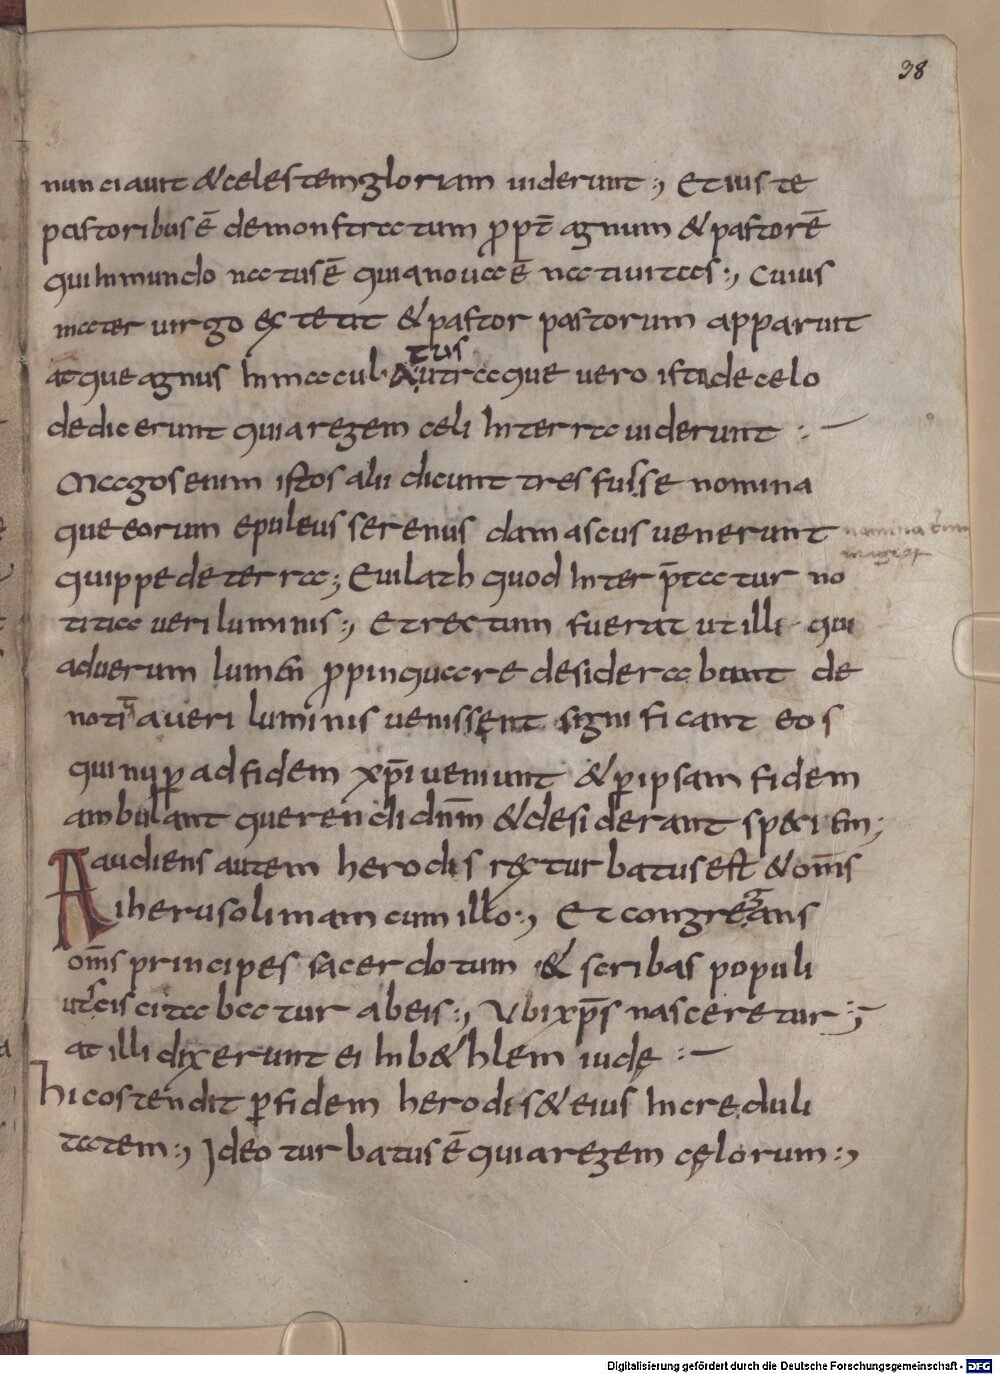 38
nunciavit & celestem gloriam uiderunt:, Et ius te
pastoribus ē demonstratum ꝓpt̄ agnum & pastorē
qui in mundo natus ē quia noua ē natiuitas:, Cuius
mater uirgo extetit & pastor pastorum apparuit
atque agnus inmacul&us
utraque uero ista de celo
dedicerunt quia regem celi in terra uiderunt :-
Magos enim istos alii dicunt tres fuisse nomina
que eorum epuleus serenus damascus uenerunt
nomina eorum
magor
quippe de terra; Euilath quod inter p̄tatur no
titia ueri luminis:, Et rectum fuerat ut illi qui
ad uerum lumen ꝓpinquare desiderabant de
notitia ueri luminis uenissent significant eos
qui nuꝑ ad fidem xp̄i ueniunt & ꝑ ipsam fidem
ambulant querendi dn̄m & desiderant speciem;
Aaudiens autem herodis rex turbatus est & om̄s
iherusolimam cum illo:, Et congregans
om̄s principes sacerdotum & scribas populi
ut sciscitabatur ab eis:, Ubi xp̄s nasceretur:;
at illi dixerunt ei in b&hlem iudę :-
hic ostendit ꝑfidem herodis & eius increduli
tatem:, Ideo turbatus ē quia regem cęlorum:,
Digitalisierung gefördert durch die Deutsche Forschungsgemeinschaft - DFG